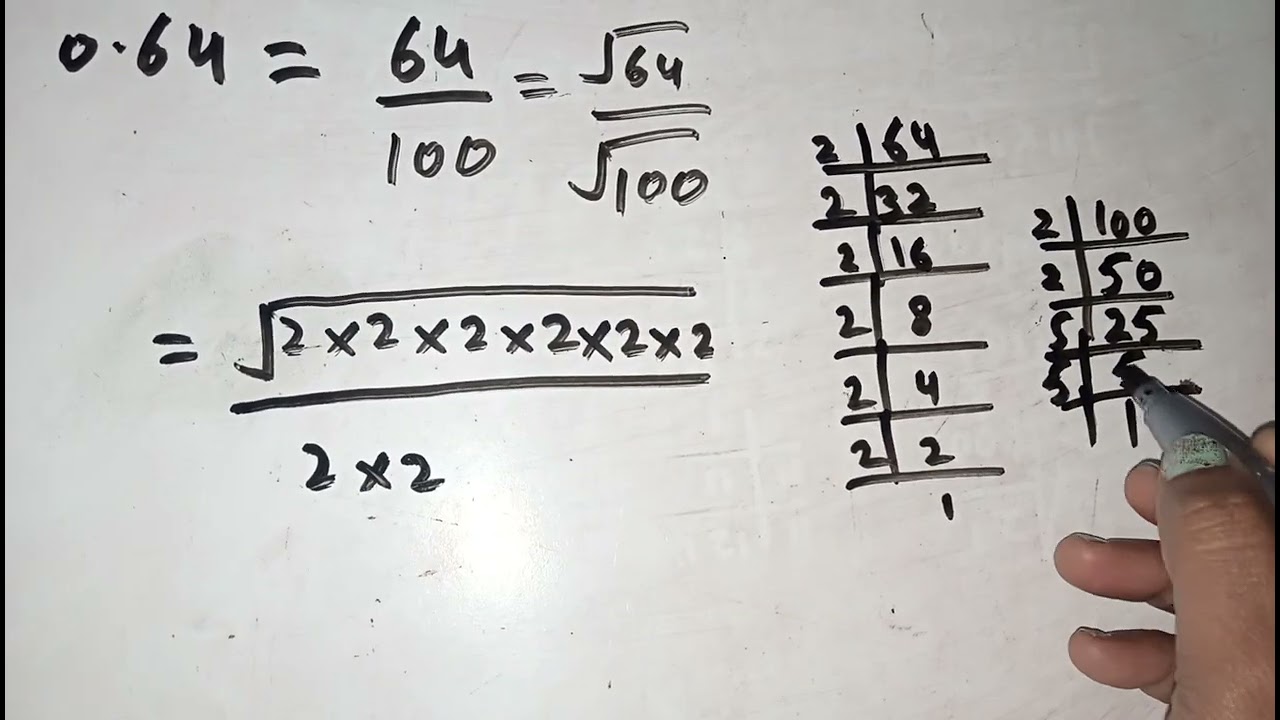 0.64 = 64/100 = √64/√100
= √2×2×2×2×2×2
2×2
2 | 64
2 | 32
2 | 16
2 | 8
2 | 4
2 | 2
1
2 | 100
2 | 50
5 | 25
5 | 5
1